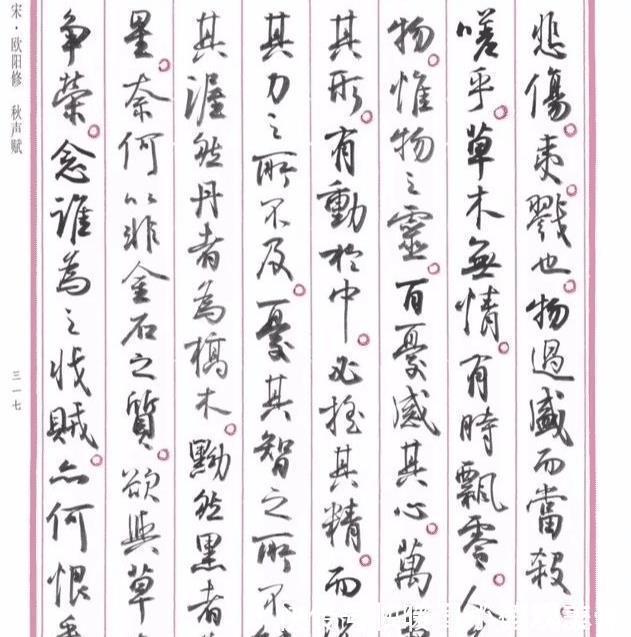 悲傷。夷。戮也。物過盛而當殺。
嗟乎。草木無情。有時飄零。人
物。惟物之靈。百憂感其心。萬
其形。有動於中。必搖其精。而
其力之所不及。憂其智之所不
其渥然丹者為槁木。黝然黑者
星。奈何以非金石之質。欲與草
争榮。念誰為之戕賊。亦何恨
宋·欧阳修 秋声赋
三一七